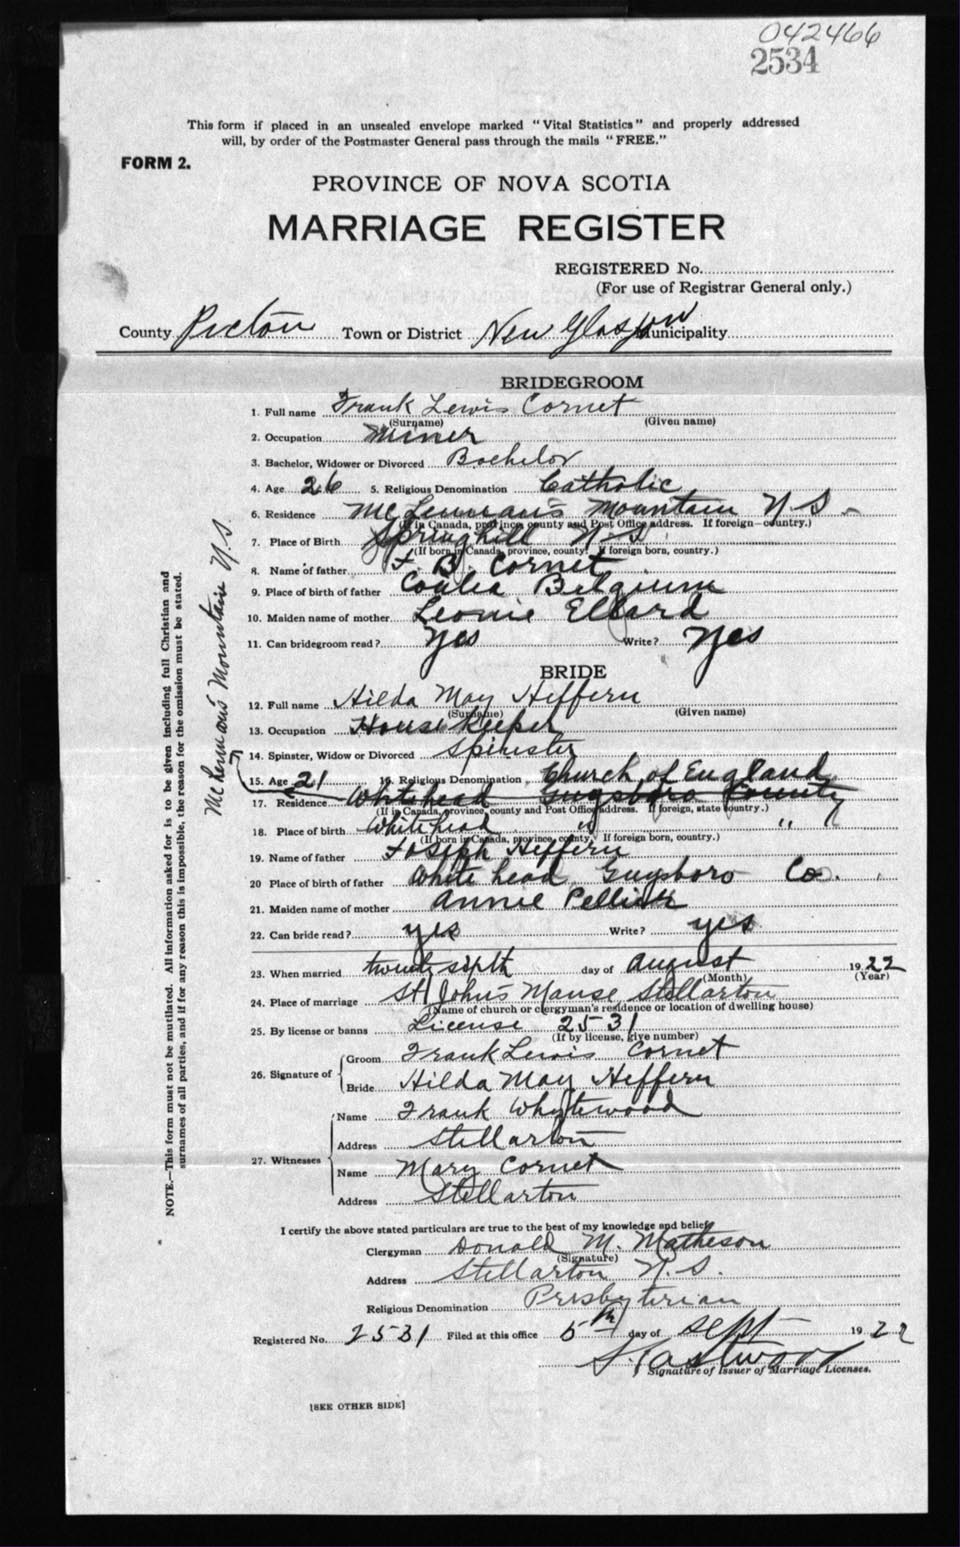 042466
2534
This form if placed in an unsealed envelope marked "Vital Statistics" and properly addressed
will, by order of the Postmaster General pass through the mails "FREE."
FORM 2.
PROVINCE OF NOVA SCOTIA
MARRIAGE REGISTER
REGISTERED No.
(For use of Registrar General only.)
County Pictou Town or District New Glasgow Municipality
BRIDEGROOM
1. Full name Frank Lewis Cornet
(Surname) (Given name)
2. Occupation Miner
3. Bachelor, Widower or Divorced Bachelor
4. Age 26 5. Religious Denomination Catholic
6. Residence McLennan's Mountain N S
(If in Canada, province, county and Post Office address. If foreign—country.)
7. Place of Birth Springhill N-S
(If born in Canada, province, county. If foreign born, country.)
8. Name of father F. B. Cornet
9. Place of birth of father Belgium
10. Maiden name of mother Leonie
11. Can bridegroom read? Yes Write? Yes
BRIDE
12. Full name Hilda May Heffern
(Surname) (Given name)
13. Occupation Housekeeper
14. Spinster, Widow or Divorced Spinster
15. Age 21 16. Religious Denomination Church of England
17. Residence Whitehead Guysboro County
(If in Canada, province, county and Post Office address. If foreign, state country.)
McLennans Mountain N.S.
18. Place of birth Whitehead " "
(If born in Canada, province, county. If foreign born, country.)
19. Name of father Joseph Heffern
20 Place of birth of father White head Guysboro Co.
21. Maiden name of mother Annie
22. Can bride read? yes Write? yes
23. When married twenty sixth day of August 1922
(Month) (Year)
24. Place of marriage St John's Manse Stellarton
(Name of church or clergyman's residence or location of dwelling house)
25. By license or banns License 2531
(If by license, give number)
26. Signature of Groom Frank Lewis Cornet
Bride Hilda May Heffern
27. Witnesses Name Frank Whytewood
Address Stellarton
Name Mary Cornet
Address Stellarton
I certify the above stated particulars are true to the best of my knowledge and belief.
Clergyman Donald M. Matheson
(Signature)
Address Stellarton N.S.
Religious Denomination Presbyterian
Registered No. 2531 Filed at this office 5th day of Sept 1922
Signature of Issuer of Marriage Licenses.
[SEE OTHER SIDE]
NOTE.—This form must not be mutilated. All information asked for is to be given including full Christian and
surnames of all parties, and if for any reason this is impossible, the reason for the omission must be stated.